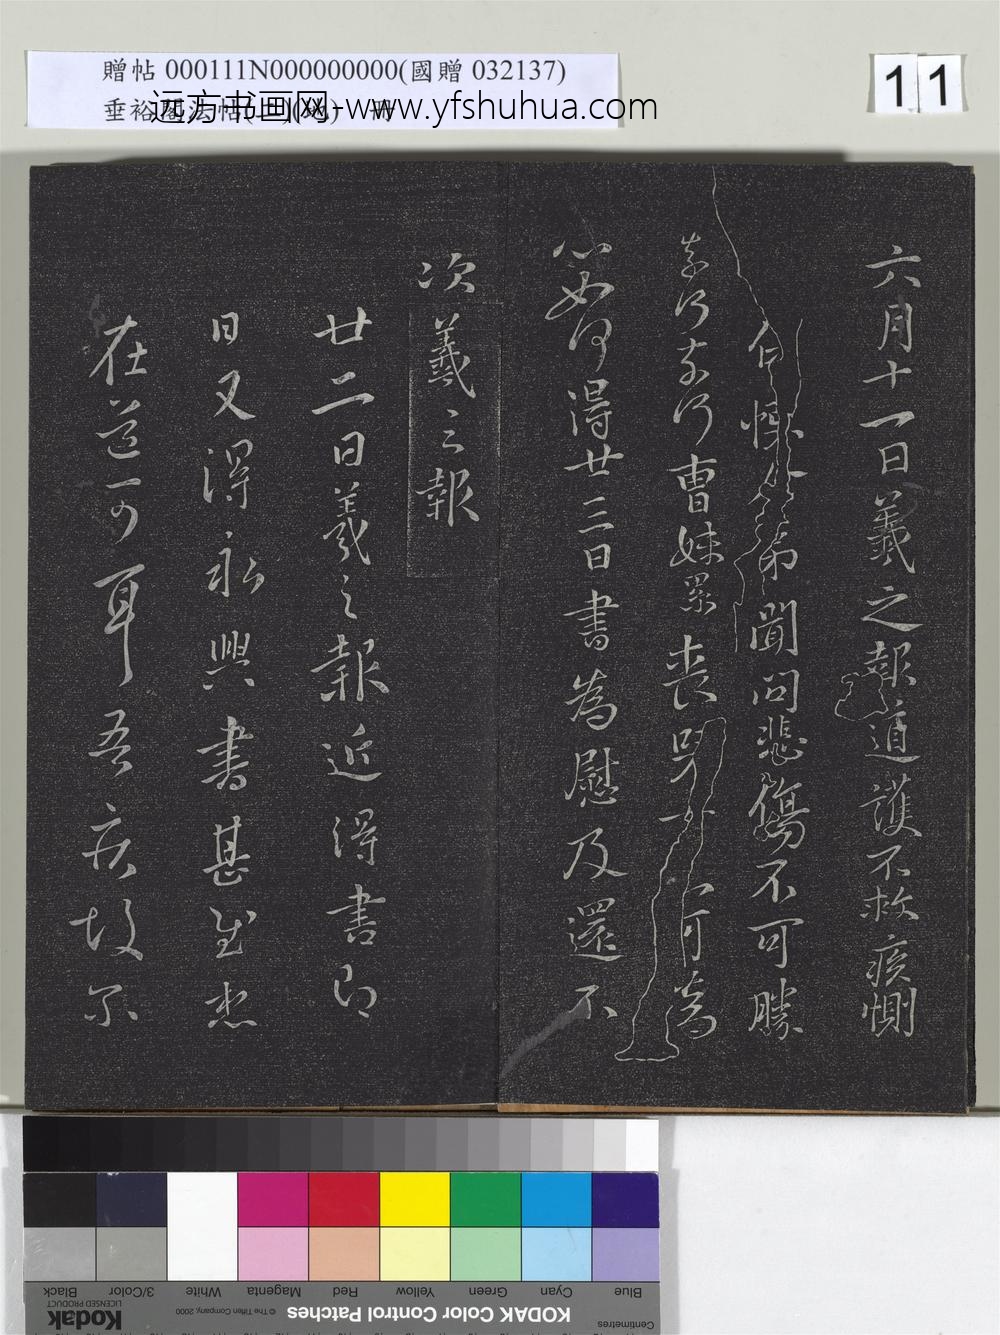 贈帖 000111N000000000(國贈 032137)
远方书画网-www.yfshuhua.com
11
六月十一日羲之報道護不救疾惻
聞問悲傷不可勝
奈何奈何曹妹累喪兒女不可為
心如何得廿三日書為慰及還不
次羲之報
廿二日羲之報近得書即
日又得永興書甚慰想
在道可耳吾疾故爾
KODAK Color Control Patches
© The Tiffen Company, 2000
Kodak
LICENSED PRODUCT
Centimetres
Blue
Cyan
Green
Yellow
Red
Magenta
White
3/Color
Black